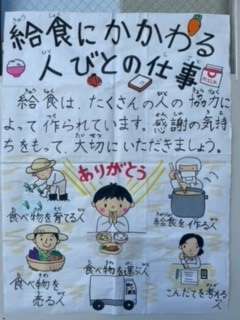 給食にかかわる
人びとの仕事
給食は、たくさんの人の協力に
よって作られています。感謝の気持
ちをもって、大切にいただきましょう。
ありがとう
食べ物を育てる人
給食を作る人
食べ物を運ぶ人
食べ物を
売る人
こんだてを考える
人